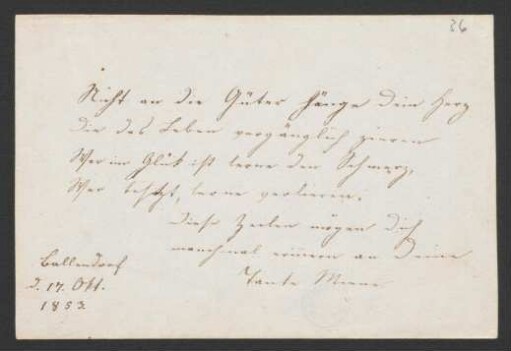 36
Nicht an die Güter hänge dein Herz
Die das Leben vergänglich zieren
Wer im Glük ist lerne den Schmerz,
Wer besitzt, lerne verlieren.
Diese Zeilen mögen Dich
manchmal erinnern an Deine
Tante Miene
Ballendorf
d. 17. Okt.
1853.